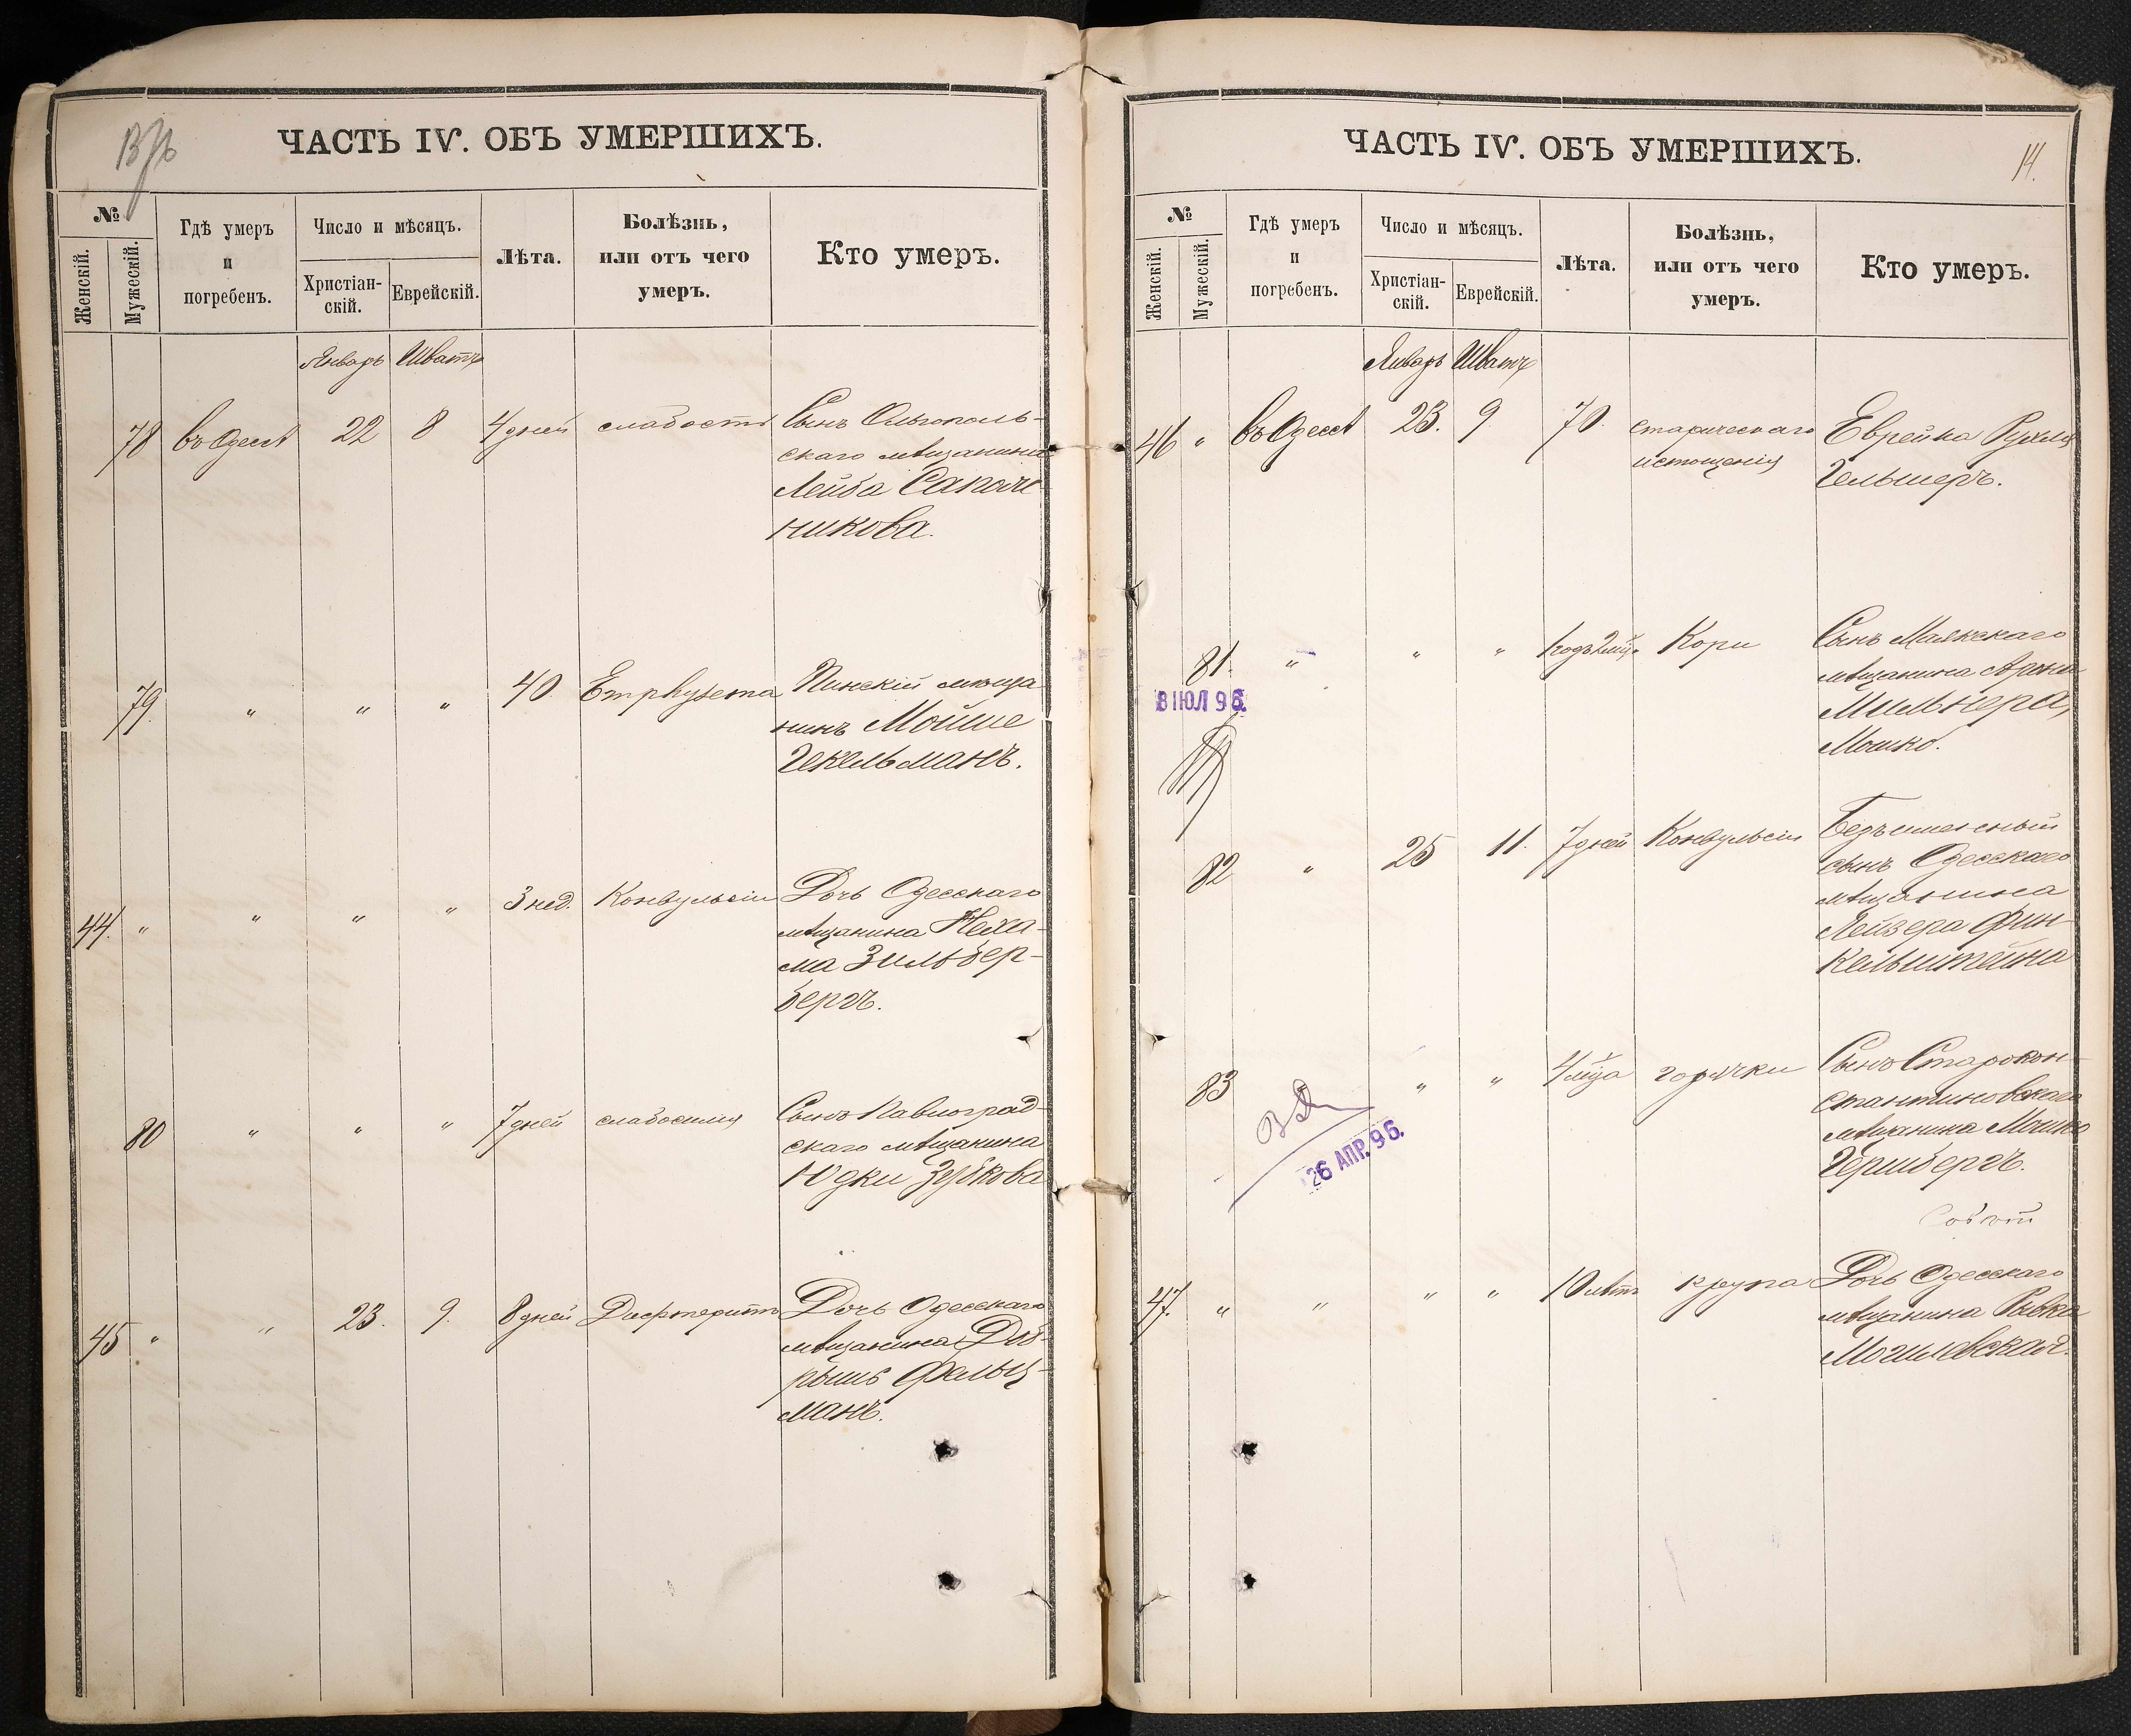 ЧАСТЬ IV. ОБЪ УМЕРШИХЪ.
№
Женскій.
Мужескій.
Гдѣ умеръ
и
погребенъ.
Число и мѣсяцъ.
Христіан-
скій.
Еврейскій.
Лѣта.
Болѣзнь,
или отъ чего
умеръ.
Кто умеръ.
Январь Шватъ
78 въ Одессѣ 22 8 4 дней слабости Сынъ Ольгополь-
скаго мѣщанина
Лейба Сапож-
никова.
79. " " " 40. Emphysema Пинскій мѣща-
нинъ Мойше
Гекельманъ.
44. " " " " 3 нед. Конвульсіи Дочь Одесскаго
мѣщанина Неха-
ма Зильбер-
бергъ.
80 " " " 7 дней слабосилія Сынъ Павлоград-
скаго мѣщанина
Юдки Зубкова
45 " " 23. 9. 8 дней Дифтеритъ Дочь Одесскаго
мѣщанина
Фальц-
манъ.
ЧАСТЬ IV. ОБЪ УМЕРШИХЪ.
14.
№
Женскій.
Мужескій.
Гдѣ умеръ
и
погребенъ.
Число и мѣсяцъ.
Христіан-
скій.
Еврейскій.
Лѣта.
Болѣзнь,
или отъ чего
умеръ.
Кто умеръ.
Январь Шватъ
46 " въ Одессѣ 23. 9. 70. старческаго Еврейка Рухля
истощенія Гельцеръ.
81. " " " 1 годъ 2 мѣс. Кори Сынъ Маякскаго
мѣщанина Арона
Мильнера,
Мошко.
8 ІЮЛ 96.
82 " 25 11. 7 дней Конвульсіи Безъименный
сынъ Одесскаго
мѣщанина
Лейзера Фин-
кельштейна
83 " " 4 мѣс̃ца горячки Сынъ Старокон-
стантиновскаго
мѣщанина Мошко
Гершбергъ.
26 АПР. 96.
47. " " " " 10 лѣтъ крупа Дочь Одесскаго
мѣщанина Рывка
Могилевская.